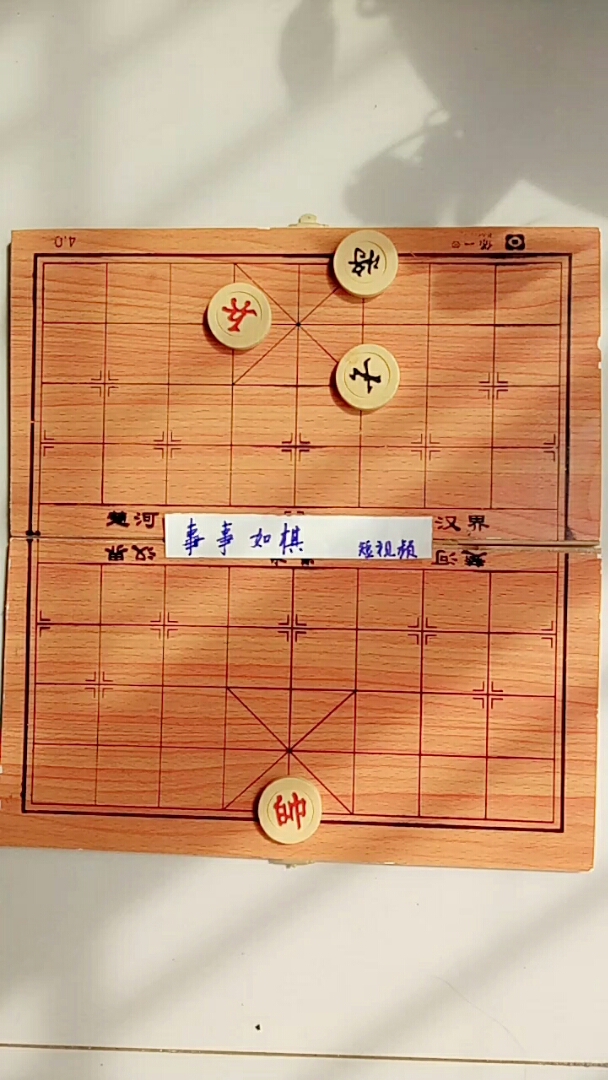 4.0
将
士
楚河 汉界
事事如棋 短视频
汉界 楚河
帥